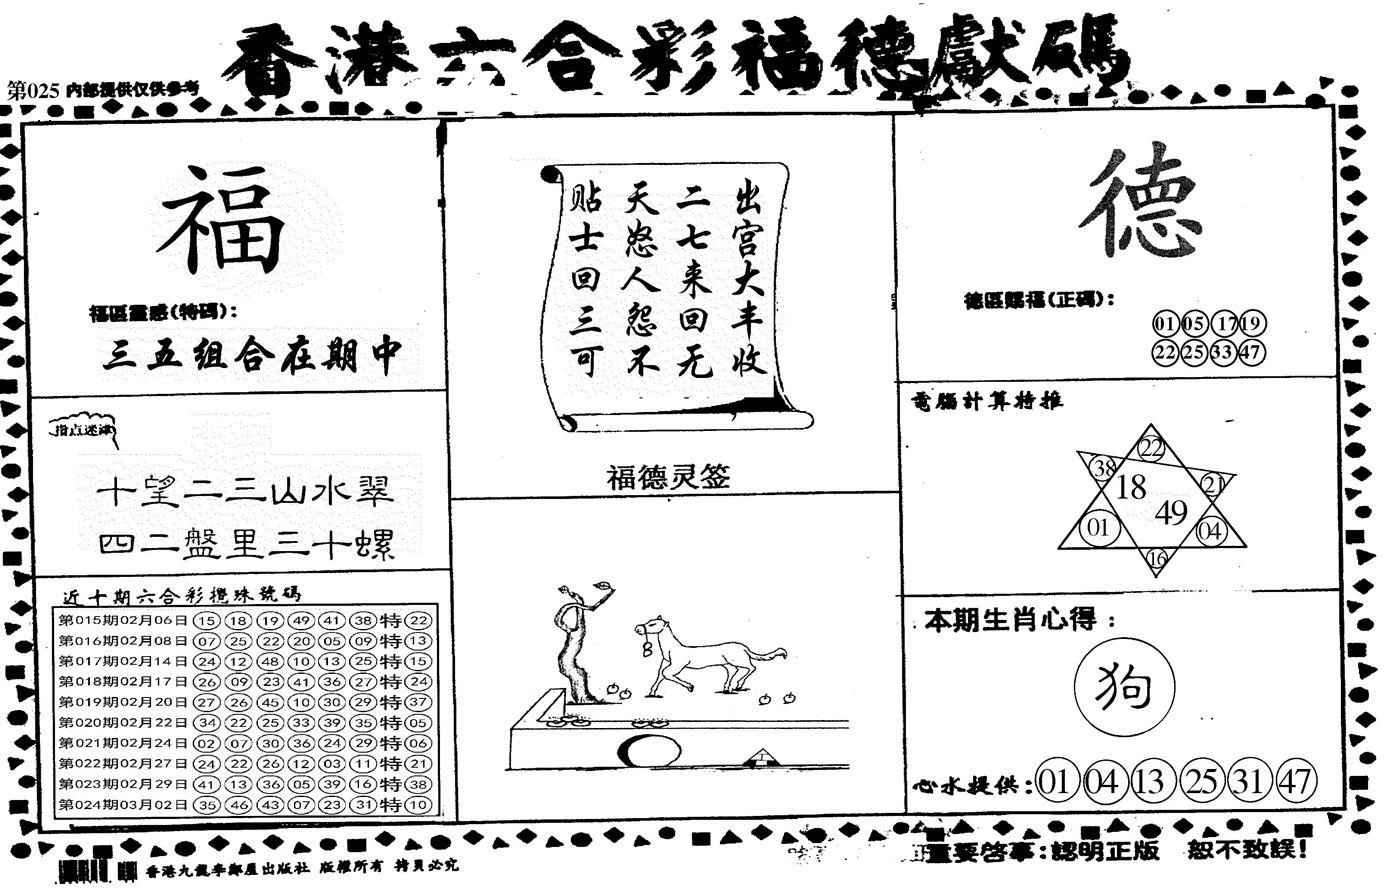 香港六合彩福德獻碼
第025 内部提供仅供参考
福
福區靈感(特碼):
三五组合在期中
指点迷津
十望二三山水翠
四二盤里三十螺
近十期六合彩攪珠號碼
第015期02月06日 15 18 19 49 41 38 特 22
第016期02月08日 07 25 22 20 05 09 特 13
第017期02月14日 24 12 48 10 13 25 特 15
第018期02月17日 26 09 23 41 36 27 特 24
第019期02月20日 27 26 45 10 30 29 特 37
第020期02月22日 34 22 25 33 39 35 特 05
第021期02月24日 02 07 30 36 24 29 特 06
第022期02月27日 24 22 26 12 03 11 特 21
第023期02月29日 41 13 36 05 39 16 特 38
第024期03月02日 35 46 43 07 23 31 特 10
出宫大丰收
二七来回无
天怒人怨不
贴士回三可
福德灵签
德
德區賜福(正碼):
01 05 17 19
22 25 33 47
電腦計算特推
22
38
21
18
49
01
04
16
本期生肖心得:
狗
心水提供: 01 04 13 25 31 47
重要啓事:認明正版 恕不致誤!
香港九龍李鄭屋出版社 版權所有 拷貝必究